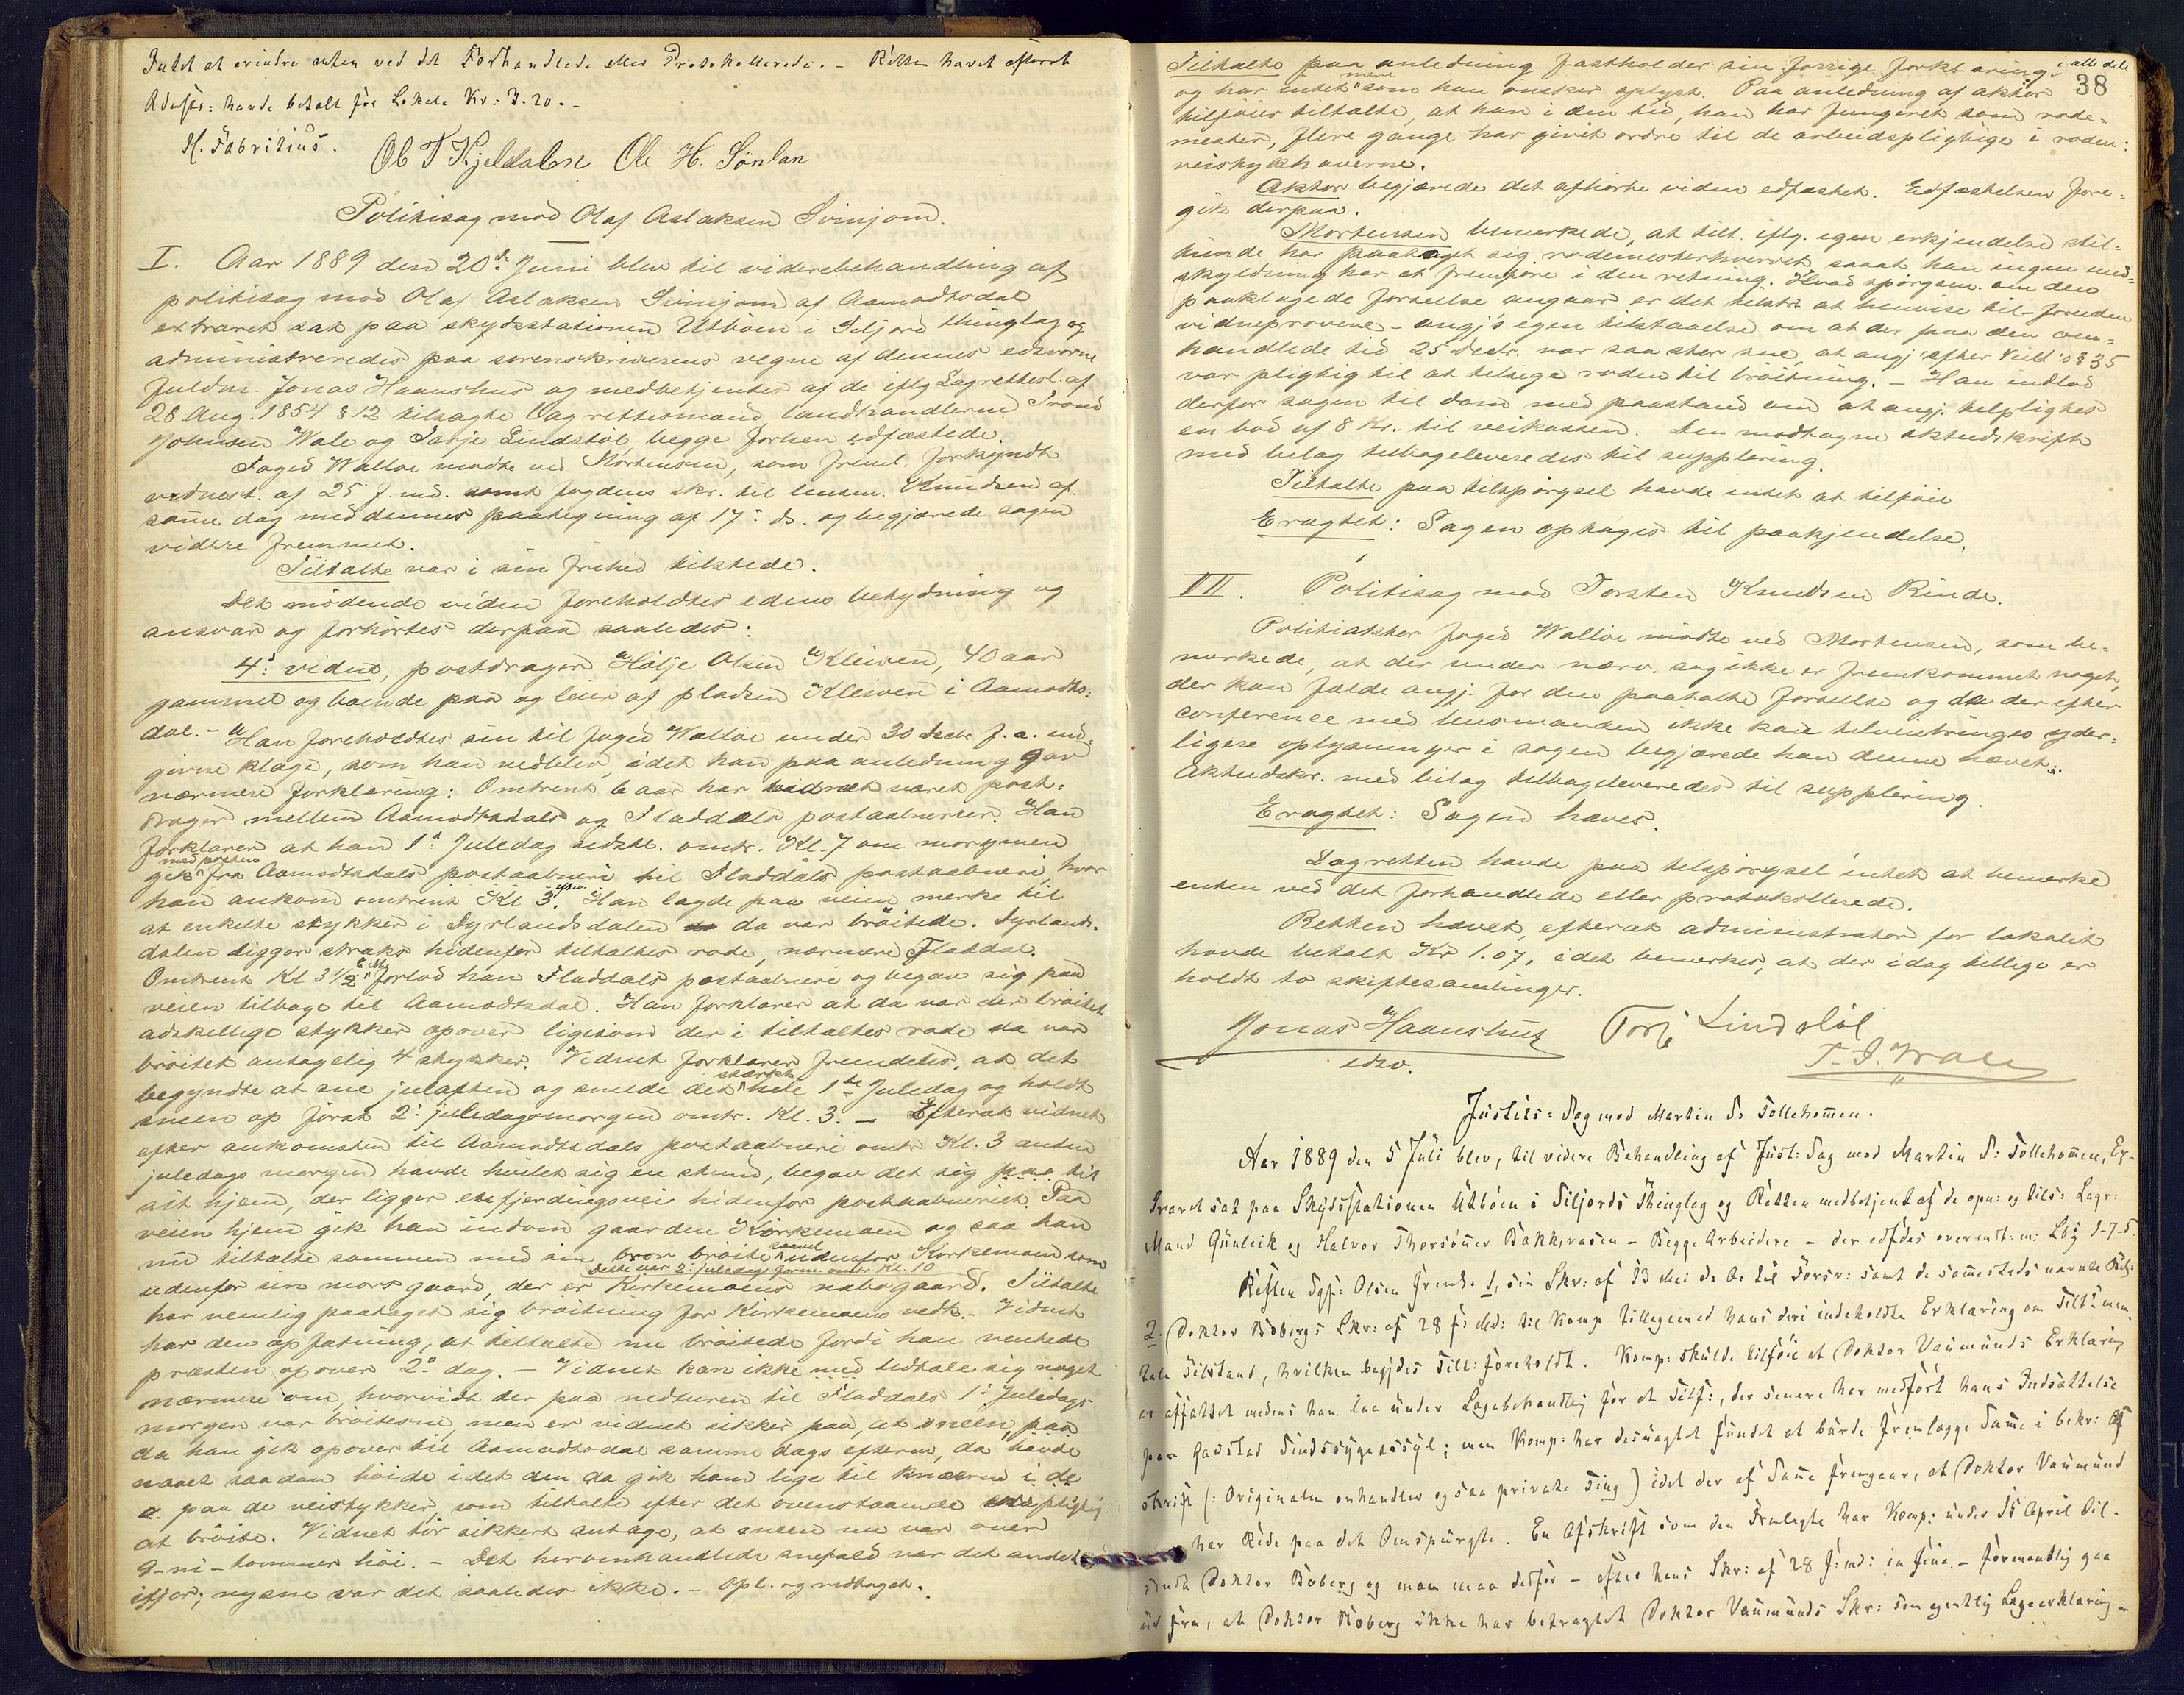 Intet at erindre enten ved det Forhandlede eller Protokollerede. – Retten hævet efterat
Admstr: havde betalt for Lokale Kr: 3.20. –
H. Fabritius. Ol T Kjeldalen Ole H. Sönlan
Politisag mod Olaf Aslaksen Svinjom.
I. Aar 1889 den 20de Juni blev til viderebehandling af
politisag mod Olaf Aslaksen Svinjom af Aamodtsdal
extraret sat paa skydsstationen Utbøen i Siljord thinglag og
administreredes paa sorenskriverens vegne af dennes edsvorne
fuldm. Jonas Haanshus og medbetjentes af de iflg Lagrettesl. af
28 Aug. 1854 § 12 tilsagte Lagrettesmænd landhandlerne Trond
Johnsen Wale og Tarje Lindstöl begge forhen edfæstede.
Foged Walløe mødte ved Mortensen, som freml. forkyndt
vidnest. af 25 f. md. samt fogdens skr. til lensm. Knudsen af
samme dag med dennes paategning af 17. ds. og begjærede sagen
videre fremmet.
Tiltalte var i sin frihed tilstede.
Det mödende vidne foreholdtes edens betydning og
ansvar og forhörtes derpaa saaledes:
4: vidne, postdrager Hölje Olsen Kleiven, 40 aar
gammel og boende paa og leier af pladsen Kleiven i Aamodts-
dal. – Han foreholdtes sin til foged Walløe under 30 Decbr f. a. ind-
givne klage, som han vedblev, idet han paa anledning gav
nærmere forklaring: Omtrent 6 aar har vidnet været post-
drager mellem Aamodtsdals og Fladdals postaabnerier. Han
forklarer at han 1ste Juledag sidste. omtr. Kl. 7 om morgenen
gik med posten fra Aamodtsdals postaabneri til Fladdals postaabneri, hvor
han ankom omtrent Kl 3 efterm. Han lagde paa veien merke til
at enkelte stykker i Dyrlandsdalen da var bröitede. Dyrlands-
dalen ligger straks hidenfor tiltaltes rode, nærmere Fladdal.
Omtrent Kl 3½ E.M. forlod han Fladdals postaabneri og begav sig paa
veien tilbage til Aamodtsdal. Han forklarer at da var der bröitet
adskillige stykker opover ligesom der i tiltaltes rode da var
bröitet antagelig 4 stykker. Vidnet forklarer fremdeles, at det
begyndte at sne julaften og snede det stærkt hele 1ste Juledag og holdt
sneen op först 2: juledagsmorgen omtr. Kl. 3. – Efterat vidnet
efter ankomsten til Aamodtsdals postaabneri omtr Kl. 3 anden
juledags morgen havde hvilet sig en stund, begav det sig paa til
sit hjem, der ligger en fjerdingsvei hidenfor postaabneriet. Paa
veien hjem gik han indom gaarden Kirkemoen og saa han
nu tiltalte sammen med sin bror bröite saavel udenfor Kirkemoen som
Dette var 2: juledags form. omtr. Kl. 10
udenfor sin mors gaard, der er Kirkemoens nabogaard. Tiltalte
har nemlig paataget sig bröitning for Kirkemoens vedk. – Vidnet
har den opfatning, at tiltalte nu bröitede fordi han ventede
præsten opover 2: dag. – Vidnet kan ikke med udtale sig noget
nærmere om, hvorvidt der paa nedturen til Fladdals 1: Juledags
morgen var bröitesne, men er vidnet sikker paa, at sneen, paa
da han gik opover til Aamodtsdal samme dags efterm, da havde
naaet saadan höide idet den da gik ham lige til knæerne i de
a. paa de veistykker, som tiltalte efter det ovenstaaende pligtig
at bröite. Vidnet tör sikkert antage, at sneen nu var over
9 – ni – tommer höi. – Det her omhandlede snefald var det andet
ifjor; nysne var det saaledes ikke. – Opl. og vedtaget.
38
Tiltalte paa anledning fastholder sin forrige forklaring i alle dele
og har intet mere som han ønsker oplyst. Paa anledning af aktor
tilföier tiltalte, at han i den tid, han har fungeret som rode-
mester, flere gange har givet ordre til de arbeidspligtige i roden:
veistykhaverne.
Aktor begjærede det afhörte vidne edfæstet. Edfæstelsen fore-
gik derpaa.
Mortensen bemerkede, at tilt. iflg. egen erkjendelse stil-
tiende har paataget sig rodemesterhvervet saaat han ingen und-
skyldning har at fremføre i den retning. Hvad spörgsm. om den
paaklagede forseelse angaar er det tilstr. at henvise til foruden
vidneprovene – angj's egen tilstaaelse om at der paa den om-
handlede tid 25 Decbr. var saa stor sne, at angj. efter Veilt's § 35
var pligtig til at tilsige roden til bröitning. – Han indlod
derfor sagen til dom med paastand om at angj. tilpligtes
en bod af 8 Kr. til veikassen. Den modtagne aktudskrift
med bilag tilbageleveredes til supplering.
Tiltalte paa tilspörgsel havde intet at tilföie
Eragtet: Sagen optages til paakjendelse.
III. Politisag mod Torsten Knudsen Rinde.
Politiaktor foged Walløe mödte ved Mortensen, som be-
merkede, at der under nærv. sag ikke er fremkommet noget,
der kan fælde angj. for den paatalte forseelse og da der efter
conference med lensmanden ikke kan tilveiebringes yder-
ligere oplysninger i sagen begjærede han denne hævet.
Aktudskr. med bilag tilbageleveredes til supplering.
Eragtet: Sagen hæves.
Lagretten havde paa tilspörgsel intet at bemerke
enten ved det forhandlede eller protokollerede.
Retten hævet, efterat administrator for lokalet
havde betalt Kr 1.07, idet bemerkes, at der idag tillige er
holdt to skiftesamlinger.
Jonas Haanshus Torje Lindstöl
edsv. T. J. Wale
Justits-Sag mod Martin S: Tollehomen.
Aar 1889 den 5 Juli blev, til videre Behandling af Just: Sag mod Martin S: Tollehomen, Ex-
traret sat paa Skydsstationen Utböen i Siljords Thinglag og Retten medbetjent af de opn: og tils: Lagr:
Mænd Gunleik og Halvor Thorsönner Bakkevasen – Begge Arbeidere – der edfdes overenst: m: Lbg 1-7-5.
Resten Sgf: Olsen fremls 1, sin Skr: af 13 Mai d. A: til Forsv: samt de sammesteds nævnte Bil:
2. Doktor Bobergs Skr: af 28 f: Md: til Komp tilligemed hans deri indeholdte Erklæring om Tilts men-
tale Tilstand, hvilken begjdes Tilt: foreholdt. Komp: skulde tilföie at Doktor Vaumunds Erklæring
er affattet medens han laa under Lægebehandling for et Tilf:, der senere har medfört hans Indsættelse
paa Gaustad Sindssygeassyl; men Komp: har desuagtet fundet at burde fremlægge Samme i bekr: Af
skrift (: Originalen omhandler ogsaa private Ting) idet der af Samme fremgaar, at Doktor Vaumund
har Rede paa det Omspurgte. En Afskrift som den Fremlagte har Komp: under 15 April til-
sendt Doktor Boberg og man maa derfor – efter hans Skr: af 28 f: md: in fine – formentlig gaa
ud fra, at Doktor Boberg ikke har betragtet Doktor Vaumunds Skr: som egentlig Lægeerklæring –